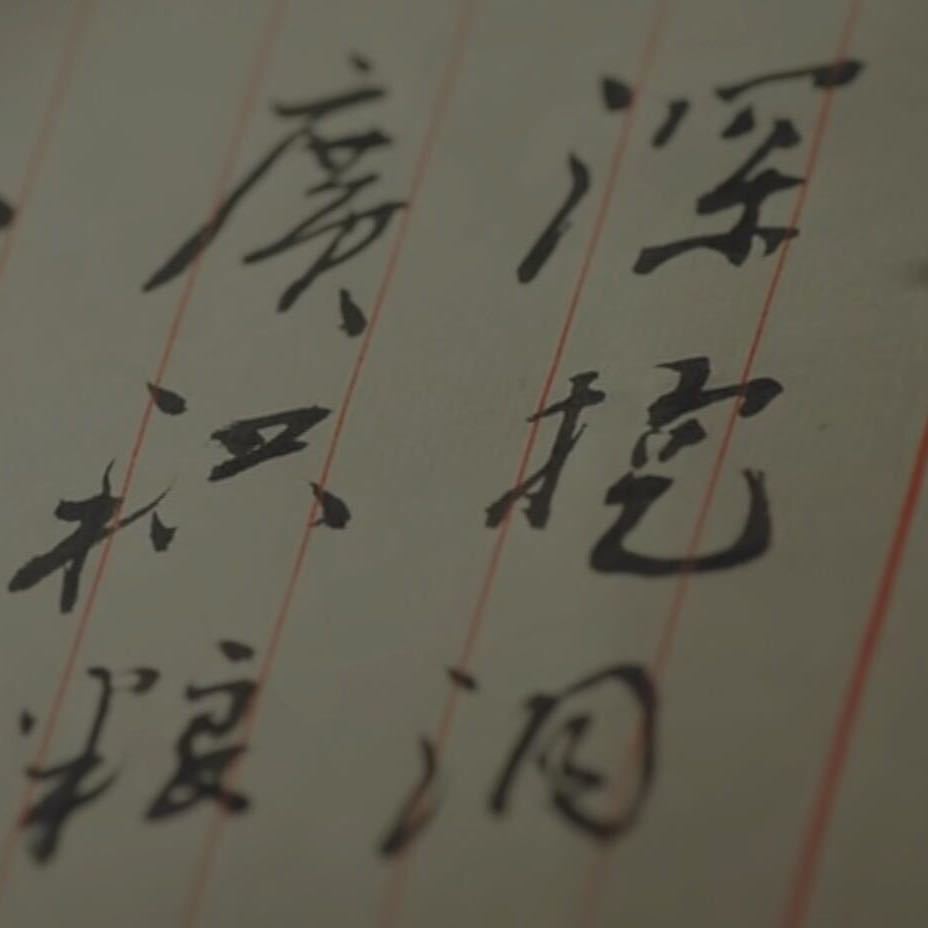 深挖洞
廣积粮